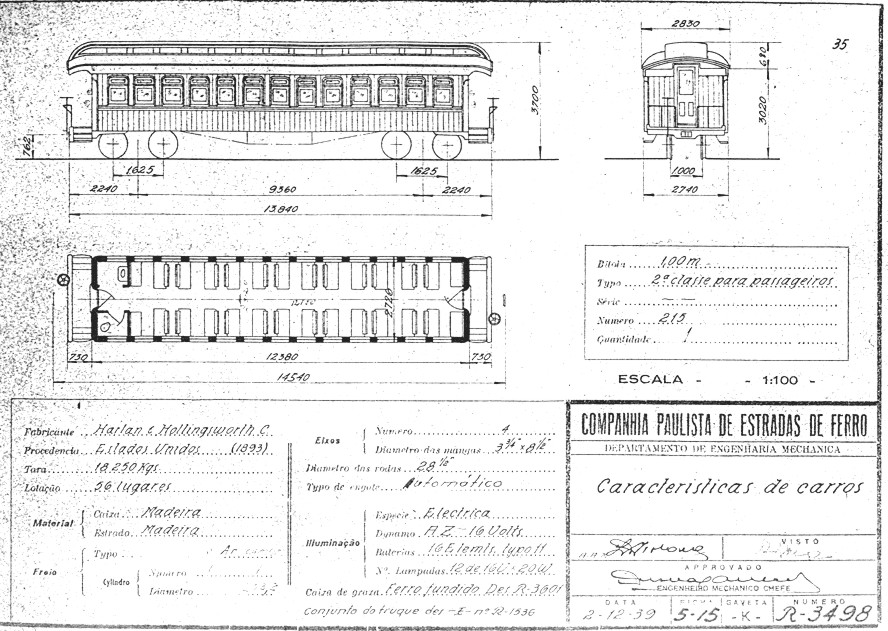 35
2830
680
3020
3700
762
1625
1625
2240
9360
2240
13.840
1000
2740
2720
730
12380
730
14540
Bitola 1,00 m -
Typo 2ª classe para passageiros
Série — —
Numero 215
Quantidade 1
ESCALA - - 1:100 -
Fabricante Harlan e Hollingsworth C.
Procedencia Estados Unidos (1893)
Tara 18.250 Kgs
Lotação 56 lugares
Material
Caixa Madeira
Estrado Madeira
Freio
Typo
Cylindro
Numero
Diametro
Eixos
Numero 4
Diametro das mangas 3 3/4" x 8 1/2"
Diametro das rodas 28 1/2"
Typo de engate Automático
Illuminação
Especie Electrica
Dynamo A Z - 16 Volts
Baterias 16 Elem.
Nº. Lampadas 12 de 16V.-20W.
Caixa de graxa Ferro fundido Des. R-3601
Conjunto do truque des -E- nº R-1536
COMPANHIA PAULISTA DE ESTRADAS DE FERRO
DEPARTAMENTO DE ENGENHARIA MECHANICA
Caracteristicas de carros
VISTO
APPROVADO
ENGENHEIRO MECHANICO CHEFE
DATA GAVETA NUMERO
2-12-39 5-15 -K- R-3498